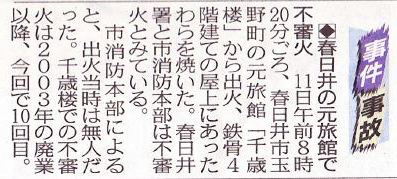 事件
事故
◆春日井の元旅館で
不審火 11日午前8時
20分ごろ、春日井市玉
野町の元旅館「千歳
楼」から出火、鉄骨4
階建ての屋上にあった
わらを焼いた。春日井
署と市消防本部は不審
火とみている。
市消防本部による
と、出火当時は無人だ
った。千歳楼での不審
火は2003年の廃業
以降、今回で10回目。